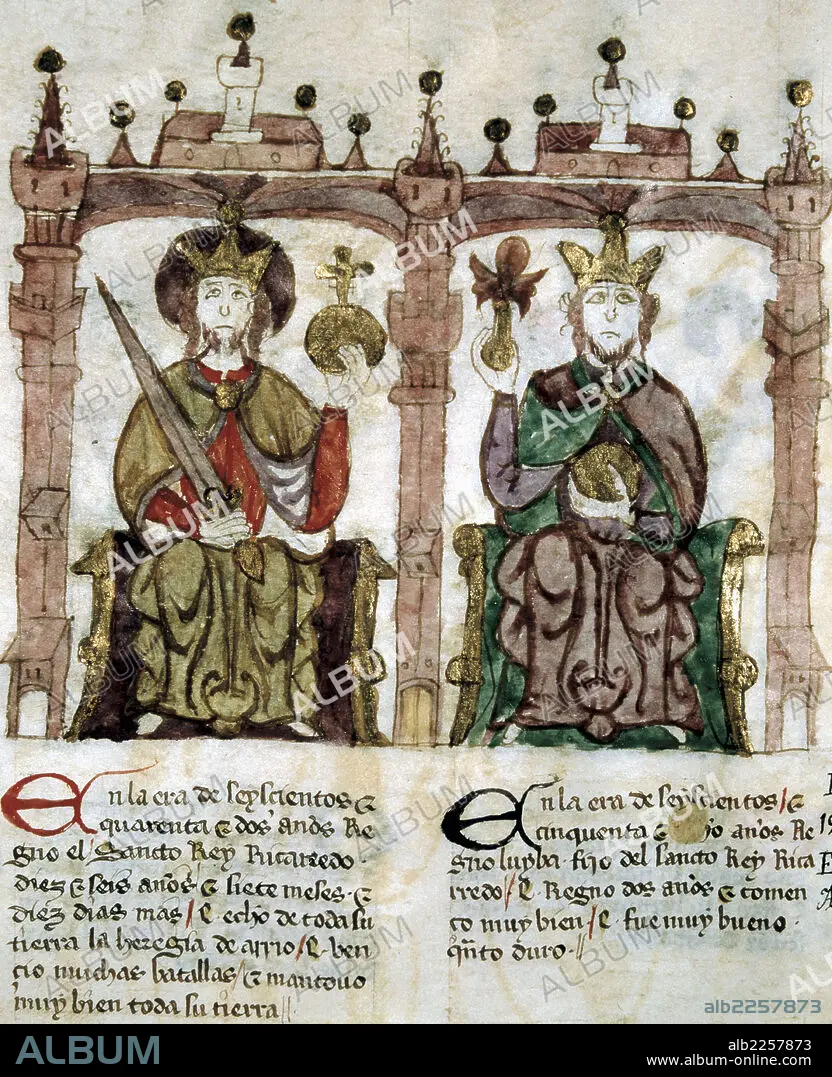 En la era de seyscientos &
quarenta & dos anos Re
gno el Sancto Rey Ricaredo.
diez & seis anos & siete meses. &
diez dias mas / E. echo de toda su
tierra la heregia de arrio / E ven
cio muchas batallas / & mantovo
muy bien toda su tierra //
En la era de seyscientos / &
cinquenta & anos Re
gno luyba. fijo del sancto Rey Rica
rredo / E. Regno dos anos & comen
co muy bien / E. fue muy bueno.
qnto duro. //
alb2257873
ALBUM
alb2257873
www.album-online.com